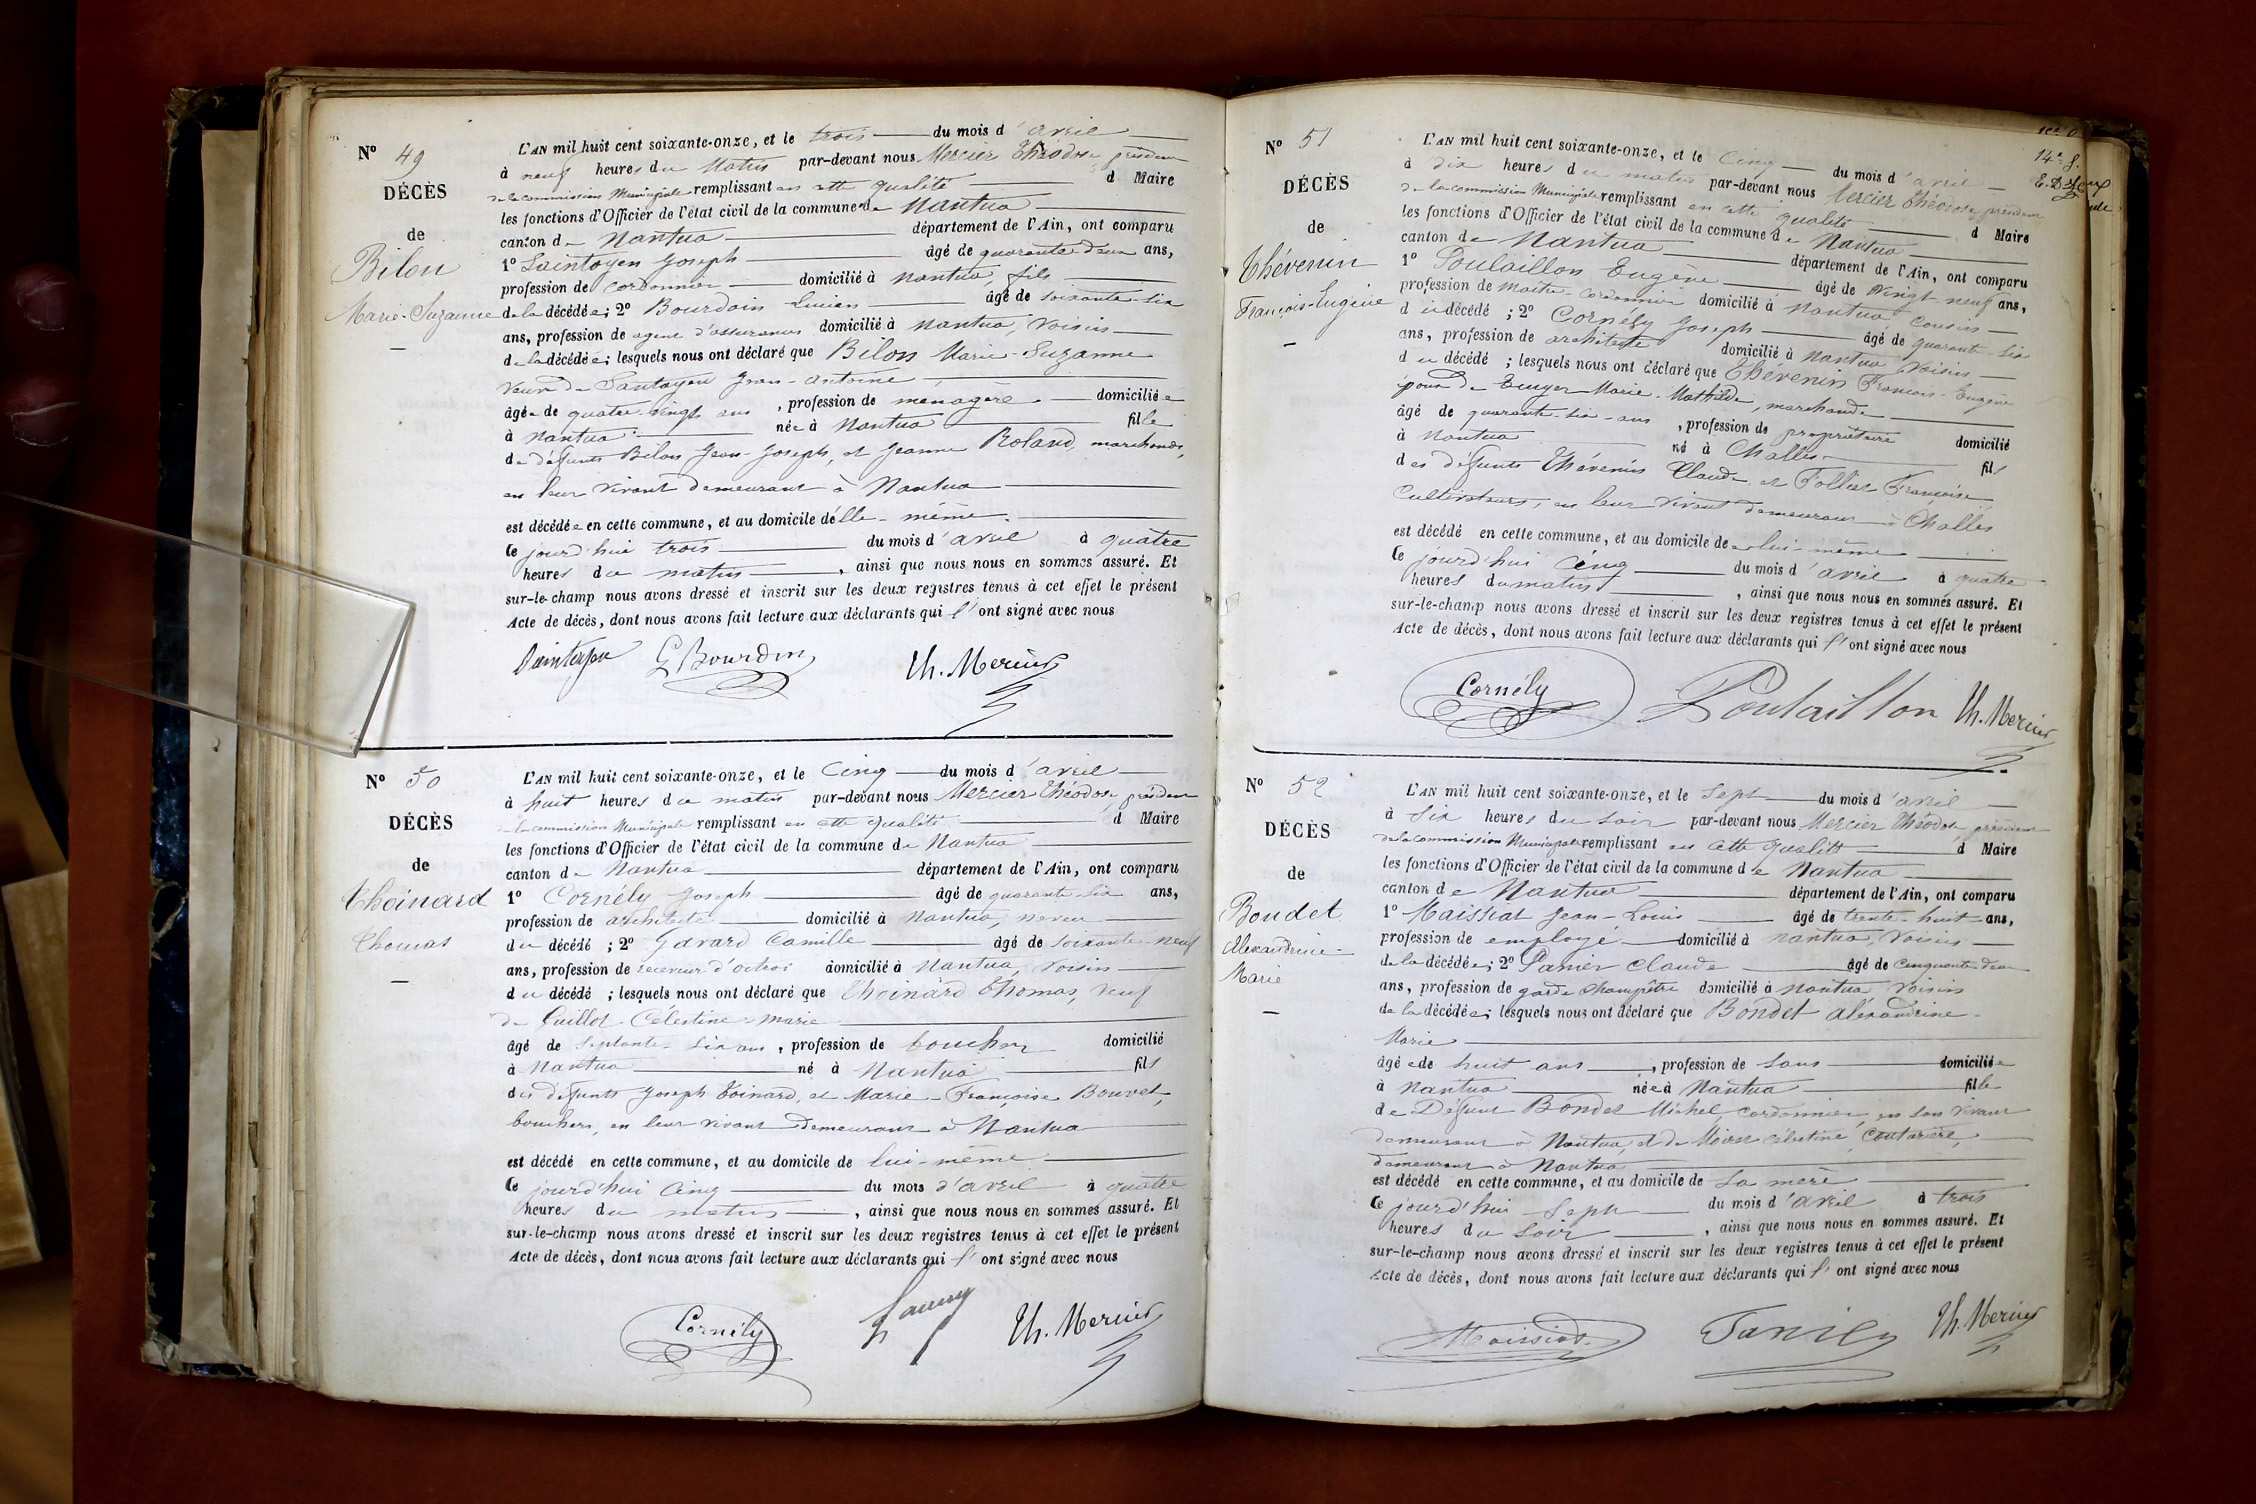 N° 49
DÉCÈS
de
Bilon
Marie-Suzanne
L'AN mil huit cent soixante-onze, et le trois du mois d'avril
à neuf heures du matin par-devant nous Mercier Théodose, président
de la commission Municipale remplissant en cette qualité d Maire
les fonctions d'Officier de l'état civil de la commune de Nantua
canton de Nantua département de l'Ain, ont comparu
1° Saintoyen Joseph âgé de quarante deux ans,
profession de cordonnier domicilié à Nantua, fils
de la décédée; 2° Bourdoin Lucien âgé de soixante-six
ans, profession de agent d'assurances domicilié à Nantua, voisin
de la décédée; lesquels nous ont déclaré que Bilon Marie-Suzanne
veuve de Santoyen Jean-Antoine
âgée de quatre-vingt ans, profession de ménagère domiciliée
à Nantua née à Nantua fille
de défunts Bilon Jean-Joseph, et Jeanne Roland, marchands,
en leur vivant demeurant à Nantua
est décédée en cette commune, et au domicile d'elle-même
Ce jourd'hui trois du mois d'avril à quatre
heures du matin, ainsi que nous nous en sommes assuré. Et
sur-le-champ nous avons dressé et inscrit sur les deux registres tenus à cet effet le présent
Acte de décès, dont nous avons fait lecture aux déclarants qui l'ont signé avec nous
G Bourdin Th. Mercier
N° 50
DÉCÈS
de
Thoinard
Thomas
L'AN mil huit cent soixante-onze, et le cinq du mois d'avril
à huit heures du matin par-devant nous Mercier Théodose, président
de la commission Municipale remplissant en cette qualité d Maire
les fonctions d'Officier de l'état civil de la commune de Nantua
canton de Nantua département de l'Ain, ont comparu
1° Cornély Joseph âgé de quarante-six ans,
profession de architecte domicilié à Nantua, neveu
du décédé; 2° Gavard Camille âgé de soixante-neuf
ans, profession de receveur d'octroi domicilié à Nantua, voisin
du décédé; lesquels nous ont déclaré que Thoinard Thomas, veuf
de Guillot Célestine-Marie
âgé de septante-six ans, profession de boucher domicilié
à Nantua né à Nantua fils
des défunts Joseph Toinard, et Marie-Françoise Bouvet,
bouchers, en leur vivant demeurant à Nantua
est décédé en cette commune, et au domicile de lui-même
Ce jourd'hui cinq du mois d'avril à quatre
heures du matin, ainsi que nous nous en sommes assuré. Et
sur-le-champ nous avons dressé et inscrit sur les deux registres tenus à cet effet le présent
Acte de décès, dont nous avons fait lecture aux déclarants qui l'ont signé avec nous
Cornély Th. Mercier
N° 51
DÉCÈS
de
Thévenin
François-Eugène
L'AN mil huit cent soixante-onze, et le cinq du mois d'avril
à dix heures du matin par-devant nous Mercier Théodose président
de la commission Municipale remplissant en cette qualité d Maire
les fonctions d'Officier de l'état civil de la commune de Nantua
canton de Nantua département de l'Ain, ont comparu
1° Poulaillon Eugène âgé de vingt neuf ans,
profession de maître-cordonnier domicilié à Nantua cousin
du décédé; 2° Cornély Joseph âgé de quarante-six
ans, profession de architecte domicilié à Nantua, voisin
du décédé; lesquels nous ont déclaré que Thévenin François-Eugène
époux de Marie-Mathilde, marchande
âgé de quarante-six-ans, profession de propriétaire domicilié
à Nantua né à Challes fils
des défunts Thévenin Claude et Follier Françoise
cultivateurs, en leur vivant demeurant à Challes
est décédé en cette commune, et au domicile de lui-même
Ce jourd'hui cinq du mois d'avril à quatre
heures du matin, ainsi que nous nous en sommes assuré. Et
sur-le-champ nous avons dressé et inscrit sur les deux registres tenus à cet effet le présent
Acte de décès, dont nous avons fait lecture aux déclarants qui l'ont signé avec nous
Cornély Poulaillon Th. Mercier
N° 52
DÉCÈS
de
Bondet
Alexandrine-
Marie
L'AN mil huit cent soixante-onze, et le sept du mois d'avril
à six heures du soir par-devant nous Mercier Théodose président
de la commission Municipale remplissant en cette qualité d Maire
les fonctions d'Officier de l'état civil de la commune de Nantua
canton de Nantua département de l'Ain, ont comparu
1° Maissiat Jean-Louis âgé de trente-huit ans,
profession de employé domicilié à Nantua, voisin
de la décédée; 2° Panier Claude âgé de cinquante deux
ans, profession de garde champêtre domicilié à Nantua voisin
de la décédée; lesquels nous ont déclaré que Bondet Alexandrine-
Marie
âgée de huit ans, profession de sans domiciliée
à Nantua née à Nantua fille
de Défunt Bondet Michel, cordonnier, en son vivant
demeurant à Nantua, et de célestine, couturière,
demeurant à Nantua
est décédé en cette commune, et au domicile de sa mère
Ce jourd'hui sept du mois d'avril à trois
heures du soir, ainsi que nous nous en sommes assuré. Et
sur-le-champ nous avons dressé et inscrit sur les deux registres tenus à cet effet le présent
Acte de décès, dont nous avons fait lecture aux déclarants qui l'ont signé avec nous
Th. Mercier